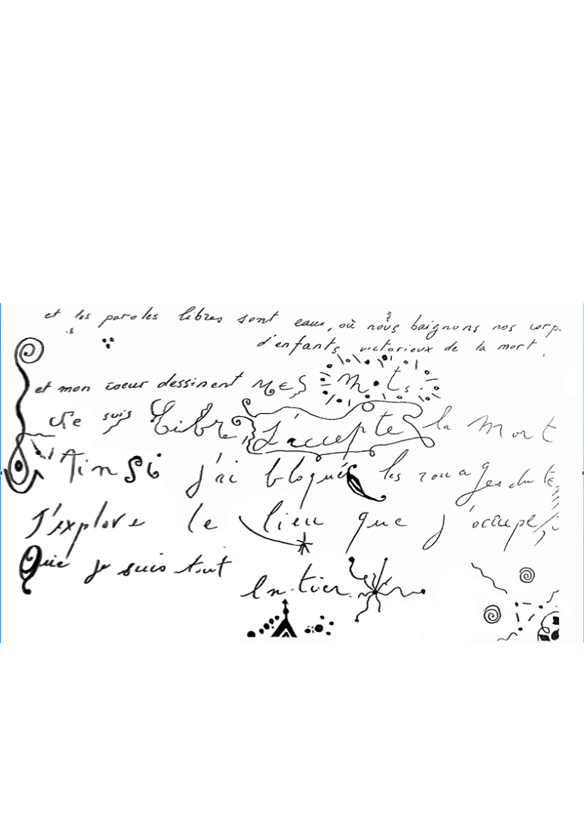 et les paroles libres sont eaux, où nous baignons nos corps
d'enfants victorieux de la mort.
et mon coeur dessinent mes mots.
Je suis Libre, J'accepte la Mort
Ainsi j'ai bloqué les rouages du te
J'explore le lieu que j'occupe,
Que je suis tout
entier.